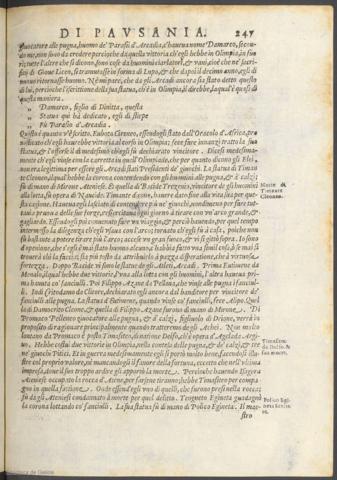 DI PAVSANIA. 247
giuocatore alle pugna, huomo de' Parasij d'Arcadia, c'haueua nome Damarco, secon-
do me, non sono da credere percioche da quella vittoria ch'egli hebbe in Olimpia, in fuo
ri tutte l'altre che si dicono, sono cose da huomini ciarlatori, & vani, cioè che ne' sacri-
ficij di Gioue Liceo, si tramutasse in forma di Lupo, & che da poi il decimo anno, egli di
nuouo ritornasse huomo. Ne à me pare, che da gli Arcadi ancora sia stato detto questo
di lui, percioche l'iscrittione della sua statua, ch'è in Olimpia, il direbbe, la qual'è quasi di
questa maniera.
„ Damarco, figlio di Dinitta, questa
„ Statua quì hà dedicato, egli di stirpe
„ Fù Parasio d'Arcadia.
Questo è quanto v'è scritto. Eubota Cireneo, essendogli stato dall'Oracolo d'Africa, pro
nosticato ch'egli haurebbe vittoria al corso in Olimpia; fece fare innanzi tratto la sua
statua, & l'istesso dì il medesimo ch'egli fù dichiarato vincitore. Dicesi medesima-
mente ch'egli vinse con la carretta in quell'Olimpiade, che per quanto dicono gli Elei,
non era legittima per essere gli Arcadi stati Presidenti de' giuochi. La statua di Timan
te Cleoneo, laqual'hebbe la corona concorrendo con gli huomini, alle pugna, & à' calzi;
fù di mano di Mirone Ateniese. Et quella di Baside Trezenio, vincitore de gli huomini
alla lotta, fù opera di Naucide. Timante da poi, hauere dato fine alla vita sua per que-
sta cagione. Haueua egli lasciato di contendere più ne' giuochi, nondimeno per fare tut-
tauia pruoua delle sue forze, s'essercitaua ogni giorno à tirare con vn'arco grande, &
gagliardo. Essendogli poi conuenuto fare vn viaggio, & perciò hauendo, per quel tempo
intermesso la diligenza ch'egli vsaua con l'arco; tornato ch'egli fù à casa, poiche non
fù bastante à potere tirare più l'arco; accese vn gran fuoco, & vi si gittò sopra. Io sono
d'openione, che s'egli è mai stato huomo alcuno, c'habbia fatto vna simil cosa, ò se mai si
trouerà chi la faccia; sia più tosto da attribuirlo à pazza disperatione, che à virtuosa
fortezza. Doppo Baside vi sono le statue de gli Atleti, Arcadi. Prima Eutimene da
Menalo, il qual'hebbe due vittorie, l'vna alla lotta con gli huomini, l'altra haueua pri-
ma hauuta co' fanciulli. Poi Filippo Azane da Pellana, che vinse alle pugna i fanciul-
li. Indi Critodamo da Clitore, dichiarato egli ancora dal banditore per vincitore de'
fanciulli alle pugna. La statua d'Eutimene, quando vinse co' fanciulli, fece Alipo. Quel
la di Damocrito Cleone, & quella di Filippo Azane furono di mano di Mirone. Di
Promaco Pelleneo giuocatore alle pugna, & à' calzi, figliuolo di Drione, verrà
proposito di ragionare principalmente quando tratteremo de gli Achei. Non molto
lontano da Promaco è posto Timasiteo, di natione Delfo, ch'è opera d'Agelada Argi-
uo. Hebbe costui due vittorie in Olimpia, nella contesa delle pugna, & de' calzi; & tre
ne' giuochi Pitici. Et in guerra medesimamente egli si portò molto bene, facendosi illu
stre col proprio valore, nè mancandogli il fauore della fortuna, eccetto che nell'vltima
impresa, doue il suo troppo ardire gli apportò la morte. Percioche hauendo Isagora
Ateniese occupato la rocca d'Atene, per farsene tiranno hebbe Timasiteo per compa-
gno in quella fattione. Onde essend'egli vno di quelli, che furono presi nella rocca;
fù da gli Ateniesi condannato à morte per quel delitto. Teogneto Egineta guadagnò
la corona lottando co' fanciulli. La sua statua fù di mano di Polico Egineta. Il mae-
stro
Morte di
Timante
Cleoneo.
Timasiteo
da Delfo, &
sua morte.